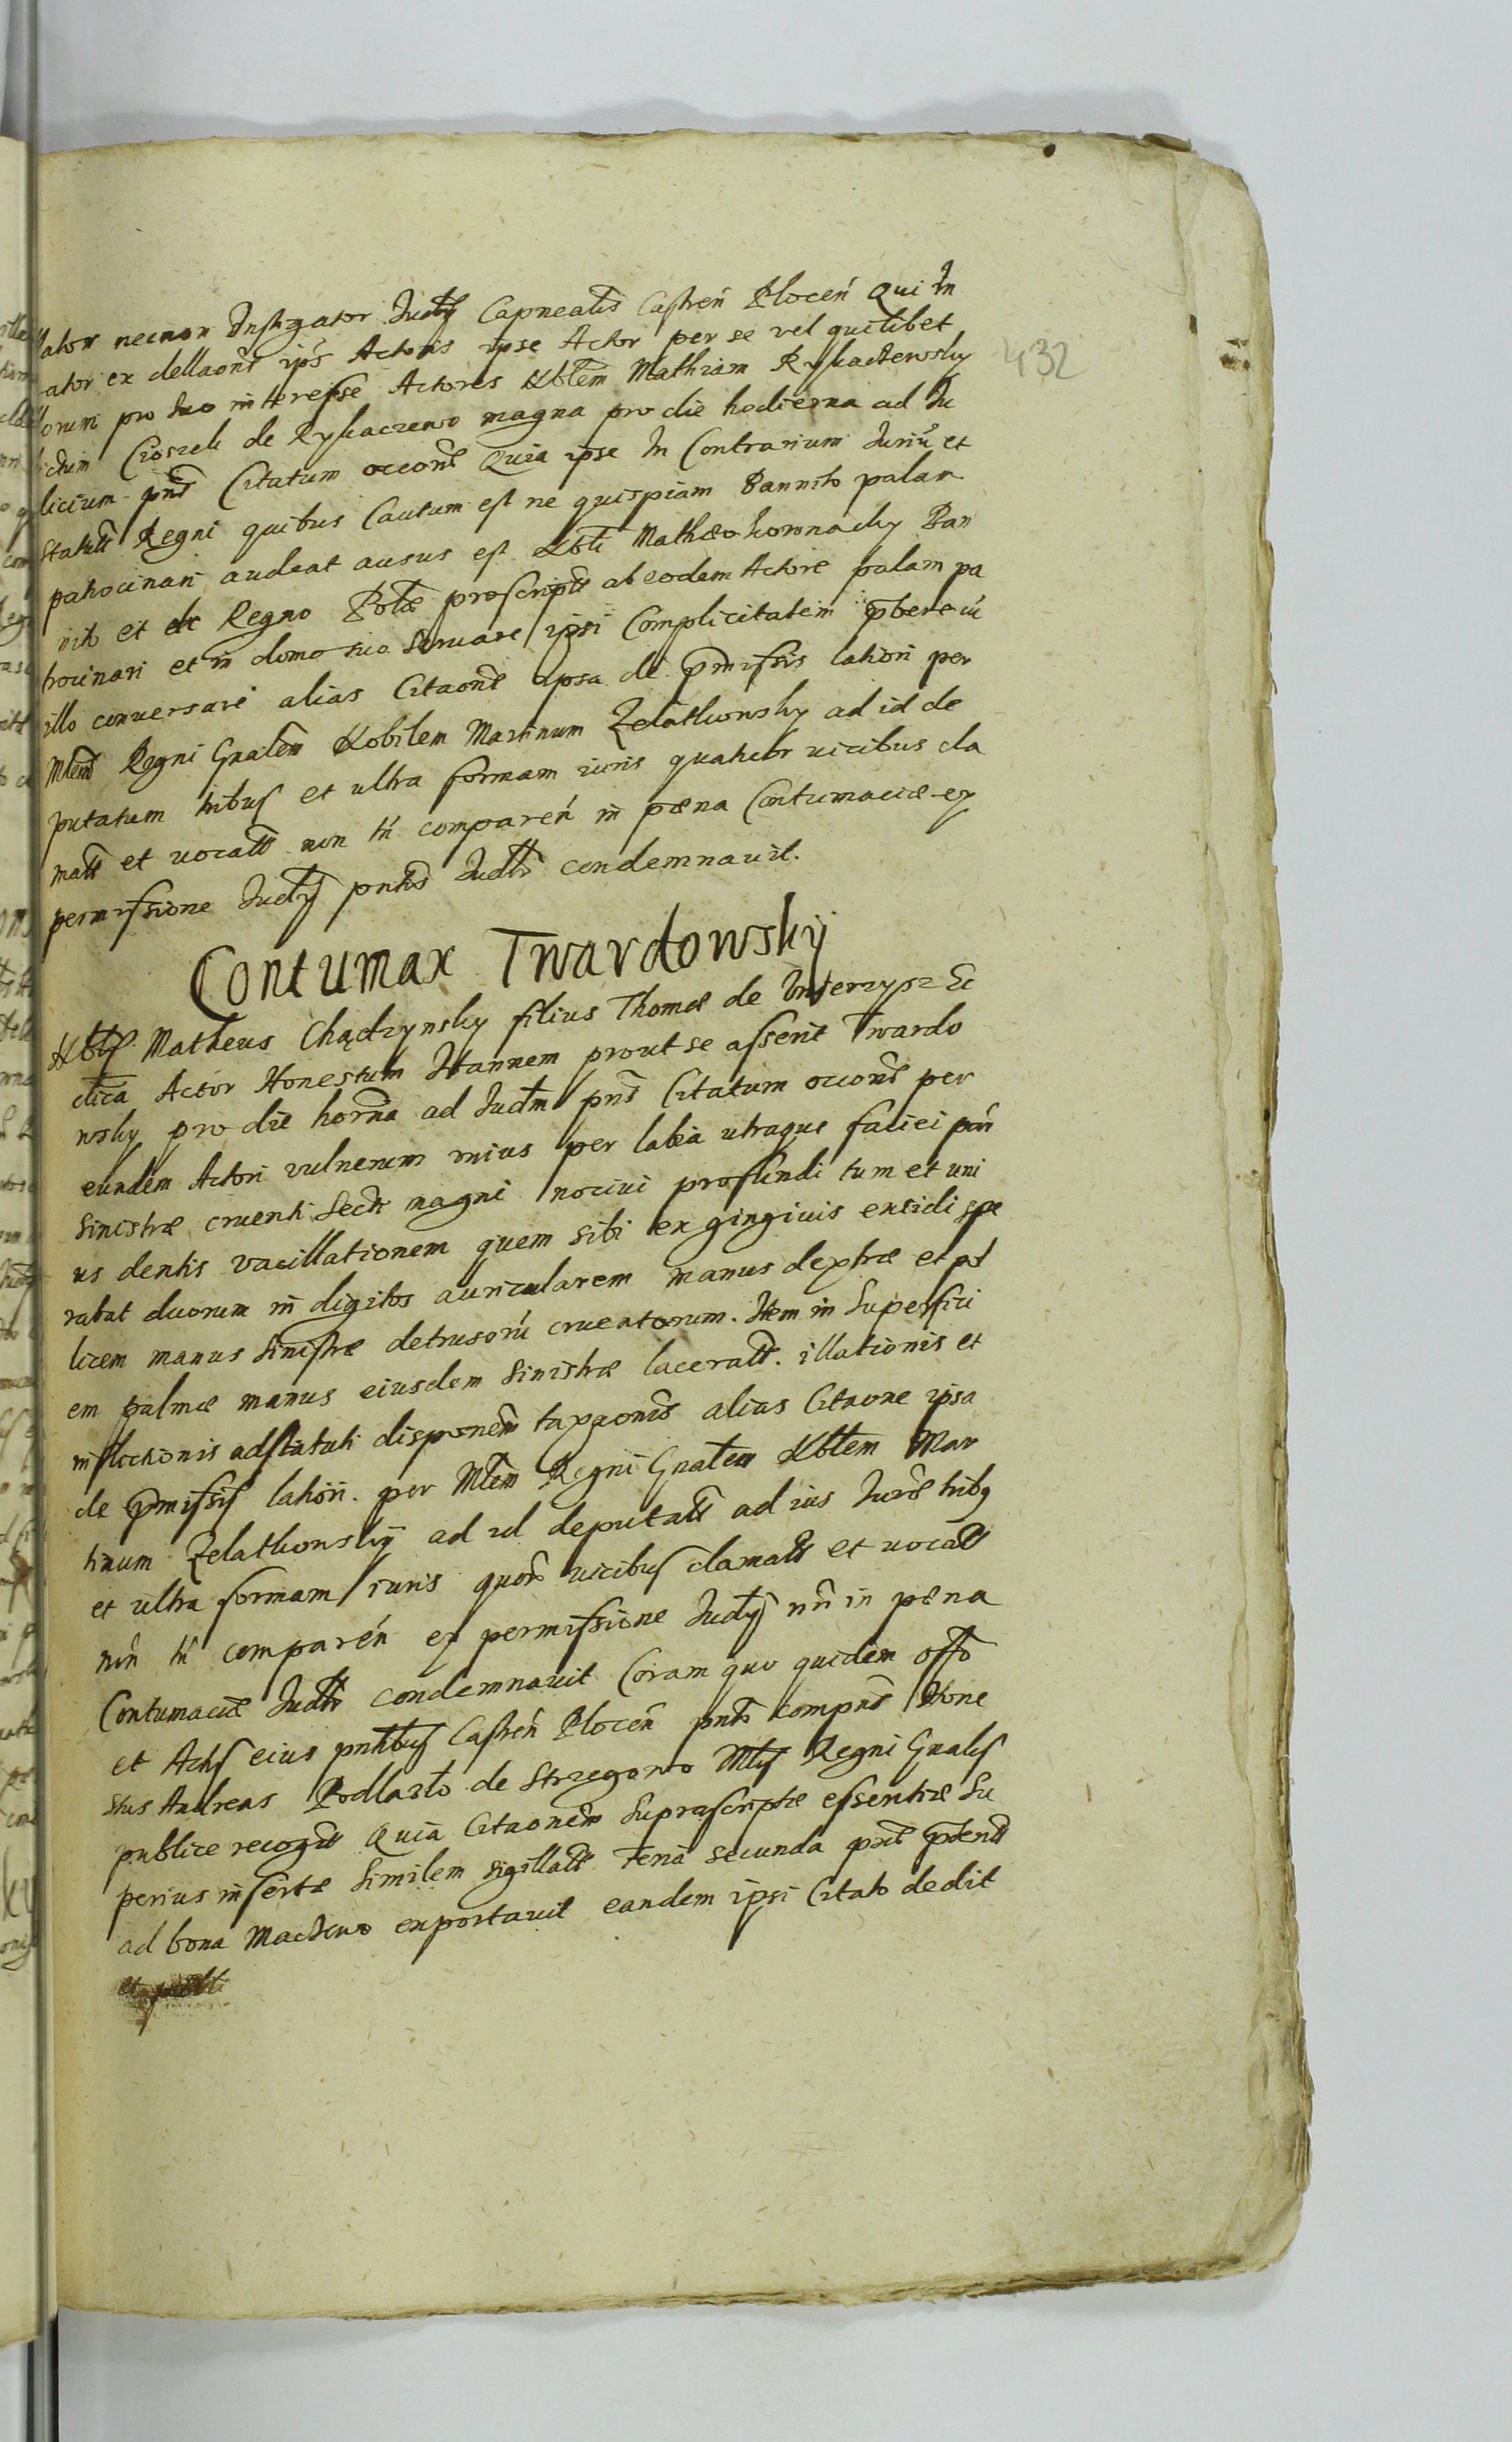 ator necnon Instigator Iudty Capnealis Castren Plocen Qui In
ator ex dellaone ips Actoris ipse Actor per se vel quilibet
orum pro suo interesse Actores Nbtem Mathiam Rykaczewsky
432
dictum Cioszek de Rykaczewo magna pro die hodierna ad Iu
dicium pns Citatum occone Quia ipse In Contrarium Iuriu et
statutt Regni quibus Cautum est ne quispiam Bannito palam
patrocinari audeat ausus est Nbti Mathæo Ban
nito et ex Regno Polæ proscripto ab eodem Actore palam pa
trocinari et in domo sua servare ipsi Complicitatem pbere cu
illo conversari alias Citaone ipsa de pmissis latiori per
Mtem Regni Gnalem Nobilem Martinum Zelathowsky ad id de
putatum tribus et ultra formam iuris quatuor vicibus cla
matt et vocatt non tn comparen in pæna Contumaciæ ex
permissione Iudty pntis Iudtr condemnavit.
Contumax Twardowsky
Nbtis Matheus Chądzynsky filius Thomæ de
Actor Honestum Ioannem prout se asserit Twardo
wsky pro die horna ad Iudtm pns Citatum occone per
eundem Actori vulnerum unius per labia utraque faciei par
sinistræ cruenti secti magni nocivi profundi tum et uni
us dentis vacillationem quem sibi ex gingivis excidi spe
rabat duorum in digitos auricularem manus dextræ et pol
licem manus sinistræ detrusoru cruentorum. Item in superfici
em palmæ manus eiusdem sinistræ laceratt. illationis et
inflictionis ad statuti disponem taxaonis alias Citaone ipsa
de pmissis latiori. per Mtem Regni Gnalem Nbtem Mar
tinum Zelathowsky ad id deputatt ad ius Iure tribq
et ultra formam iuris quor vicibus clamatt et vocatt
non tn comparen ex permissione Iudty nri in pæna
Contumaciæ Iudtr condemnavit Coram quo quidem offo
et Actis eius pntibus Castren Plocen pntr compns Hone
stus Andreas de Strzegowo Mtis Regni Gnalis
publice recogtt Quia Citaonem suprascriptæ essentiæ su
perius insertæ similem sigillatt feria secunda pxe ptente
ad bona exportavit eandem ipsi Citato dedit
et